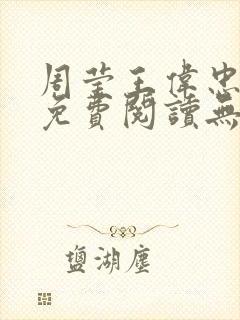 周莹王偉忠
免費閱讀無
鹽湖塵